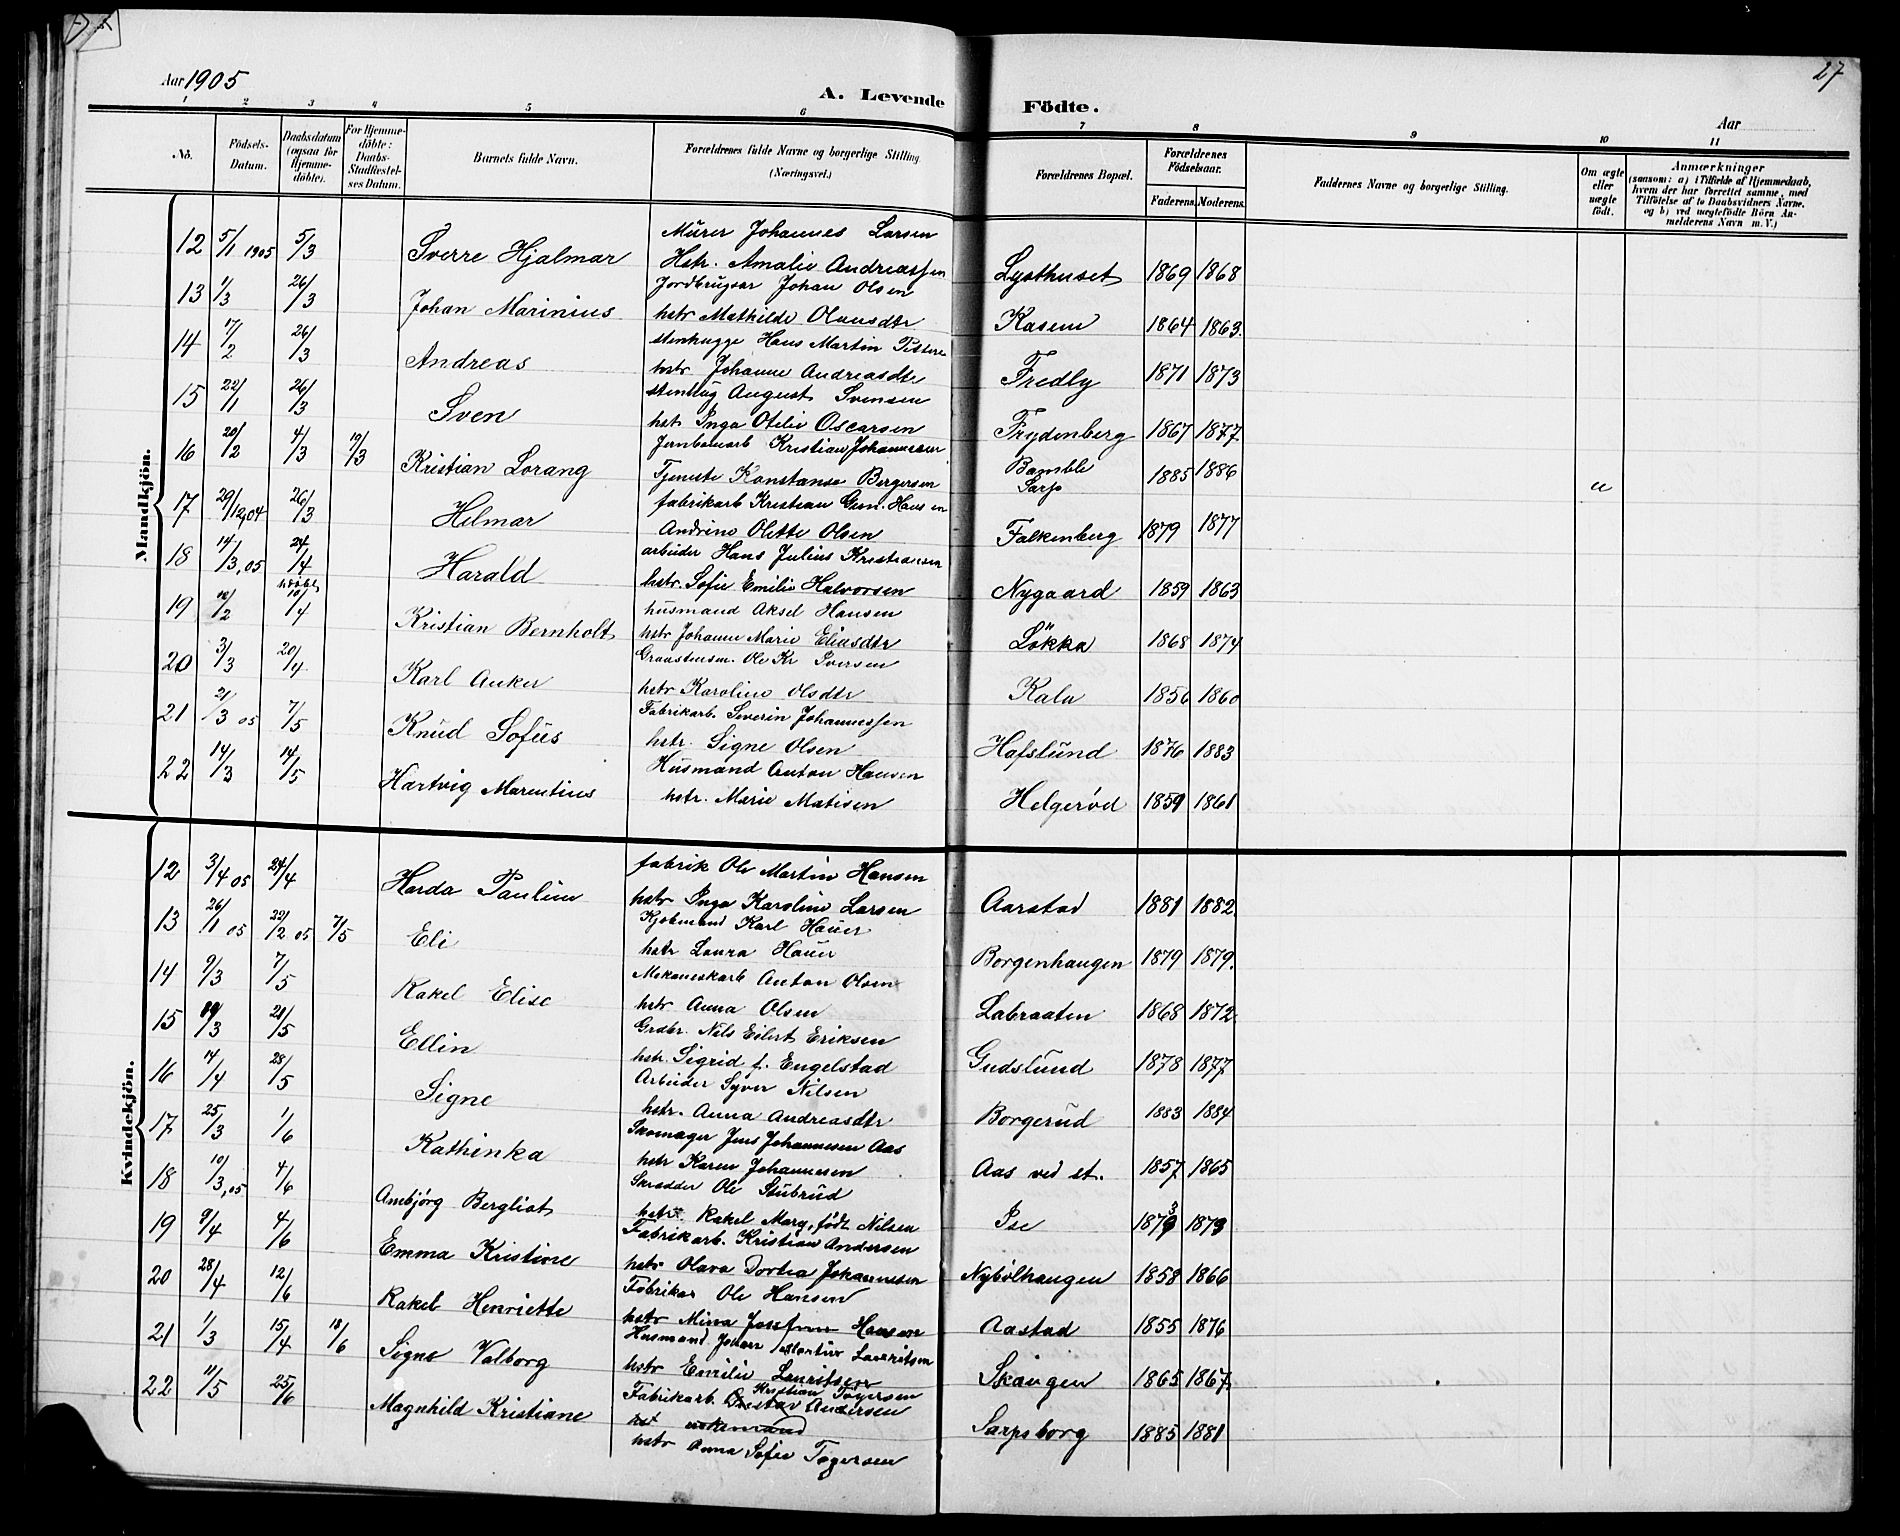 27
Aar 1905
A. Levende Födte.
Aar
1 2 3 4 5 6 7 8 9 10 11
No.
Födsels-Datum.
Daabsdatum (ogsaa for Hjemme-döbte).
For Hjemme-döbte: Daabs-Stadfæstelses Datum.
Barnets fulde Navn.
Forældrenes fulde Navne og borgerlige Stilling (Næringsvei.)
Forældrenes Bopæl.
Forældrenes Födselsaar.
Faderens. Moderens.
Faddernes Navne og borgerlige Stilling.
Om ægte eller uægte födt.
Anmærkninger
(saasom: a) i Tilfælde af Hjemmedaab, hvem der har forrettet samme, med Tilföielse af to Daabsvidners Navne, og b) ved uægtefödte Börn Anmelderens Navn m. V.)
Mandkjön.
12 5/1 1905 5/3 Sverre Hjalmar Murer Johannes Larsen
Hstr. Amalie Andreassen Lysthuset 1869 1868
13 1/3 26/3 Johan Marinius Jordbruger Johan Olsen
hstr Mathilde Olausdtr Kasem 1864 1863.
14 17/2 26/3 Andreas stenhugge Hans Martin Petters
hstr Johanne Andreasdtr Fredly 1871 1873
15 22/1 26/3 Sven stenhug August Svensen
hst Inga Otilie Oscarsen Frydenberg 1867 1877.
16 20/2 4/3 19/3 Kristian Lorang Jernbanearb Kristian Johannesen
Tjeneste Konstanse Bergersen Bamble Sarp 1885 1886 u
17 29/12,04 26/3 Helmar fabrikarb Kristian Hansen
Andrine Olette Olsen Falkenberg 1879 1877
18 14/3,05 24/4 Harald arbeider Hans Julius Kristiansen
hstr. Sofie Emilie Halvorsen Nygaard 1859 1863
19 /2 10/4 Kristian Bernholt husmand Aksel Hansen
hstr Johanne Marie Eliasdtr Lökka 1868 1874
20 3/3 20/4 Karl Anker Graastensm. Ole Kr Iversen
hstr Karoline Olsdtr Kala 1856 1860
21 21/3 05 7/5 Knud Sofus Fabrikarb. Severin Johannessen
hstr. Signe Olsen Hafslund 1876 1883
22 14/3 14/5 Hartvig Marentius Husmand Anton Hansen
hstr. Marie Matisen Helgeröd 1859 1861
Kvindekjön.
12 3/4 05 24/4 Harda Pauline fabrik Ole Martin Hansen
hstr Inga Karoline Larsen Aarstad 1881 1882.
13 26/1 05 22/2 05 7/5 Eli Kjöbmand Karl Hauer
hstr Laura Hauer Borgenhaugen 1879 1879.
14 9/3 7/5 Rakel Elise Mekaneskarb Anton Olsen
hstr Anna Olsen Labraaten 1868 1872.
15 19/3 28/5 Ellin Grdbr. Nils Eilert Eriksen
hstr. Sigrid f. Engelstad Gudslund 1878 1877
16 14/4 28/5 Signe Arbeider Syver Nilsen
hstr. Anna Andreasdtr Borgerud 1883 1884
17 25/3 1/6 Kathinka Skomager Jens Johannesen Aas
hstr Karen Johannesen Aas ved st. 1857 1865
18 10/3,05 4/6 Ambjörg Bergliot Skrædder Ole Stubrud
hstr. Rakel Marg. födt Nilsen Ise 1873 1873
19 9/4 4/6 Emma Kristine Fabrikarb. Kristian Andersen
hstr Olava Dortea Johannesen Nybölhaugen 1858 1866
20 28/4 12/6 Rakel Henriette Fabrikar Ole Hansen
hstr Mina Josefine Hansen Aastad 1855 1876
21 1/3 15/4 18/6 Signe Valborg Husmand Johan Martin Lauritsen
hstr Emilie Lauritsen Skaugen 1865 1867.
22 11/5 25/6 Magnhild Kristiane Fabrikarb. Kristian Tögersen
Gustav Andersen
hstr Anna Sofie Tögersen Sarpsborg 1885 1881